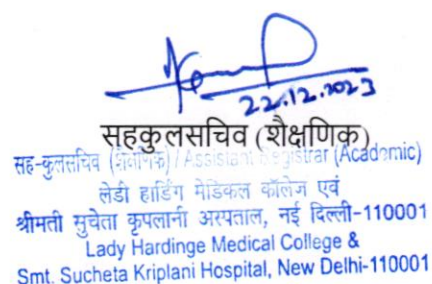 22.12.2023
सहकुलसचिव (शैक्षणिक)
सह-कुलसचिव (शैक्षणिक) / Assistant Registrar (Academic)
लेडी हार्डिंग मेडिकल कॉलेज एवं
श्रीमती सुचेता कृपलानी अस्पताल, नई दिल्ली-110001
Lady Hardinge Medical College &
Smt. Sucheta Kriplani Hospital, New Delhi-110001